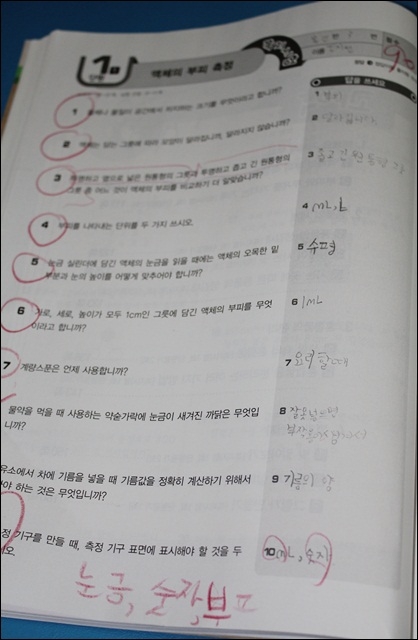 1
액체의 부피 측정
답을 쓰세요
90
1 물질이 공간에서 차지하는 크기를 무엇이라고 합니까?
1 부피
2 액체는 담는 그릇에 따라 모양이 달라집니까, 달라지지 않습니까?
2 달라집니다
3 투명하고 옆으로 넓은 원통형의 그릇과 투명하고 좁고 긴 원통형의
그릇 중 어느 것이 액체의 부피를 비교하기 더 알맞습니까?
3 좁고 긴 원통형
4 부피를 나타내는 단위를 두 가지 쓰시오.
4 mL, L
5 눈금 실린더에 담긴 액체의 눈금을 읽을 때에는 액체의 오목한 밑
부분과 눈의 높이를 어떻게 맞추어야 합니까?
5 수평
6 가로, 세로, 높이가 모두 1cm인 그릇에 담긴 액체의 부피를 무엇
이라고 합니까?
6 1mL
7 계량스푼은 언제 사용합니까?
7 요리할 때
물약을 먹을 때 사용하는 약숟가락에 눈금이 새겨진 까닭은 무엇입
니까?
8 잘못 먹으면
유소에서 차에 기름을 넣을 때 기름값을 정확히 계산하기 위해서
야 하는 것은 무엇입니까?
9 기름의 양
정 기구를 만들 때, 측정 기구 표면에 표시해야 할 것을 두
시오.
10 mL, 숫자
눈금, 숫자, 부피